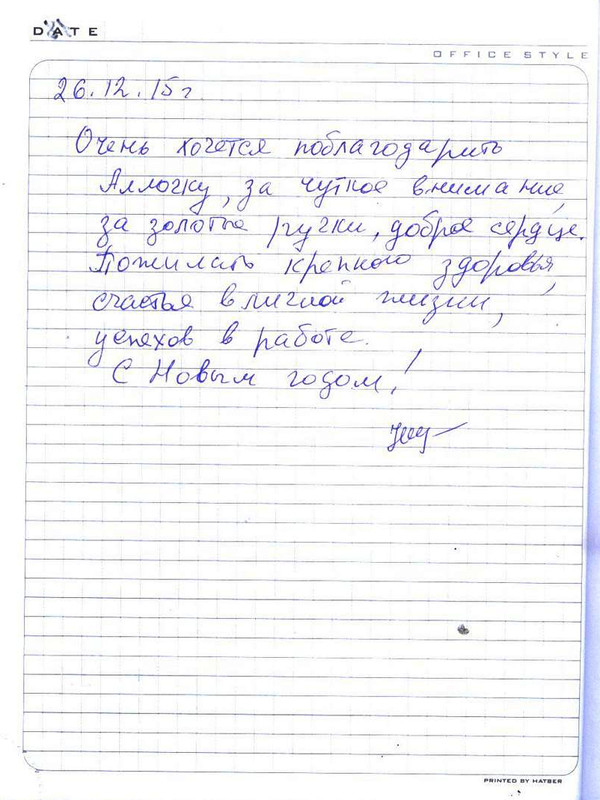 DATE
OFFICE STYLE
26.12.15г
Очень хочется поблагодарить
Аллочку, за чуткое внимание,
за золотые ручки, доброе сердце.
Пожилать крепкого здоровья,
счастья в личной жизни,
успехов в работе.
С Новым годом!
PRINTED BY HATBER